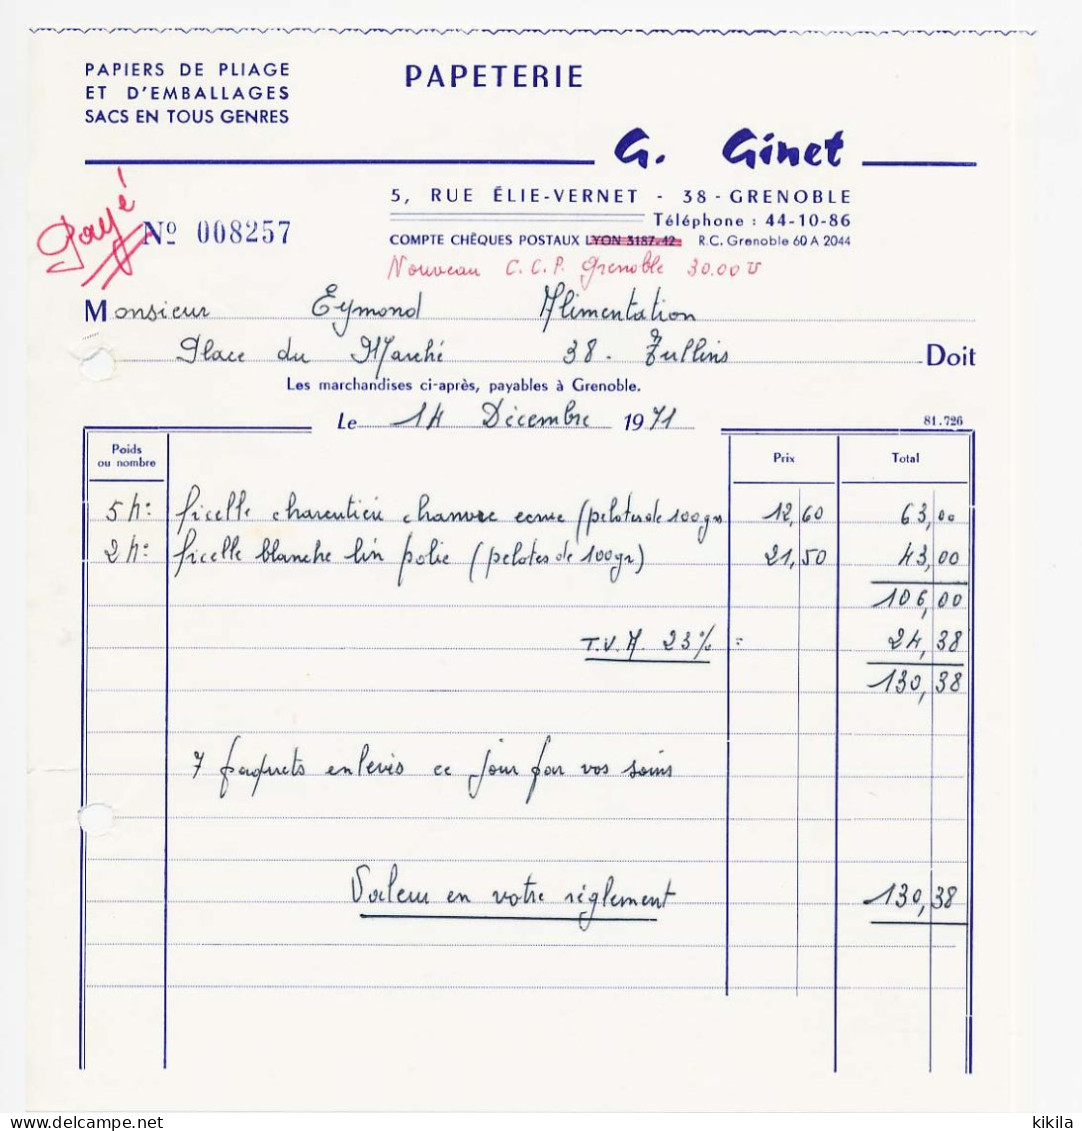 PAPIERS DE PLIAGE
ET D'EMBALLAGES
SACS EN TOUS GENRES
PAPETERIE
G. Ginet
5, RUE ÉLIE-VERNET - 38 - GRENOBLE
Téléphone : 44-10-86
Payé
Nº 008257
COMPTE CHÈQUES POSTAUX LYON 3187-42 R.C. Grenoble 60 A 2044
Nouveau C.C.P. Grenoble 30.00 U
Monsieur Eymond Alimentation
Place du Marché 38 - Tullins Doit
Les marchandises ci-après, payables à Grenoble.
Le 14 Décembre 1971
81.726
Poids ou nombre Prix Total
5 ficelle chanvre (pelotes de 100grs 12,60 63,00
2 ficelle blanche lin polie (pelotes de 100gr) 21,50 43,00
106,00
T.V.A. 23% = 24,38
130,38
7 paquets enlevés ce jour par vos soins
Valeur en votre règlement 130,38
kikila
www.delcampe.net